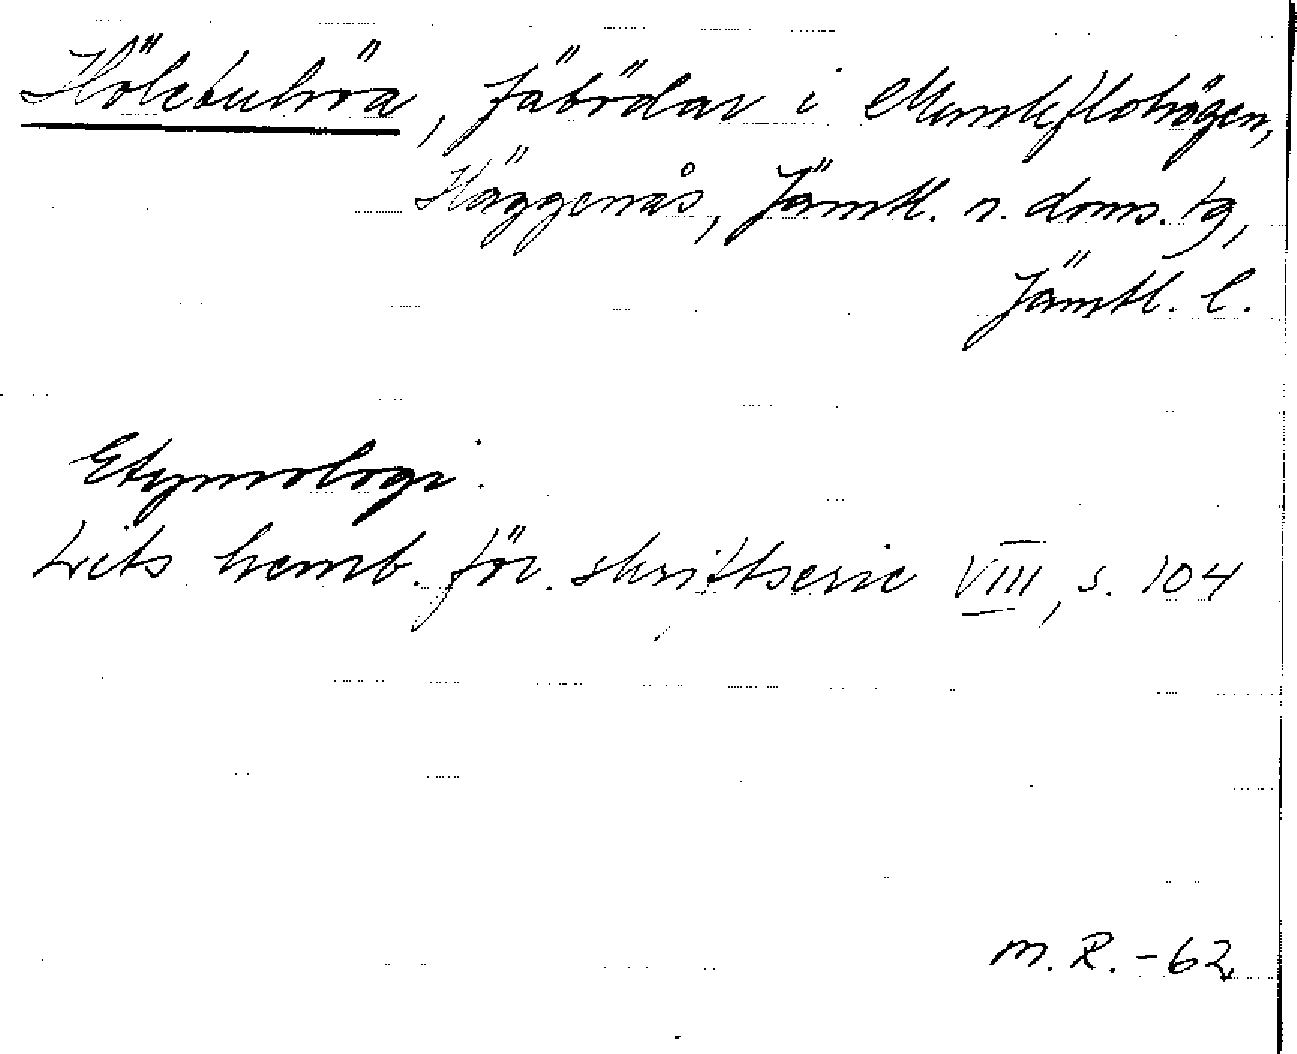 Höletuhröa, fäbodar i Munkflohögen,
Häggenås, Jämtl. n. doms. tg,
Jämtl. l.
Etymologi:
Lits hemb. för. skriftserie VIII, s. 104
M. R. -62